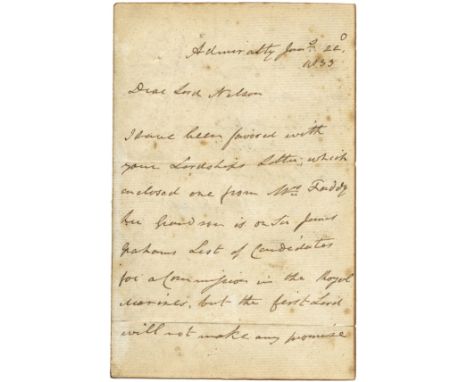 Admiralty Jany. 22
1833
Dear Lord Nelson
I have been favored with
your Lordships Letter, which
enclosed one from Mrs Faddy
her Grandson is on Sir James
Grahams List of Candidates
for a Commission in the Royal
Marines, but the first Lord
will not make any promise